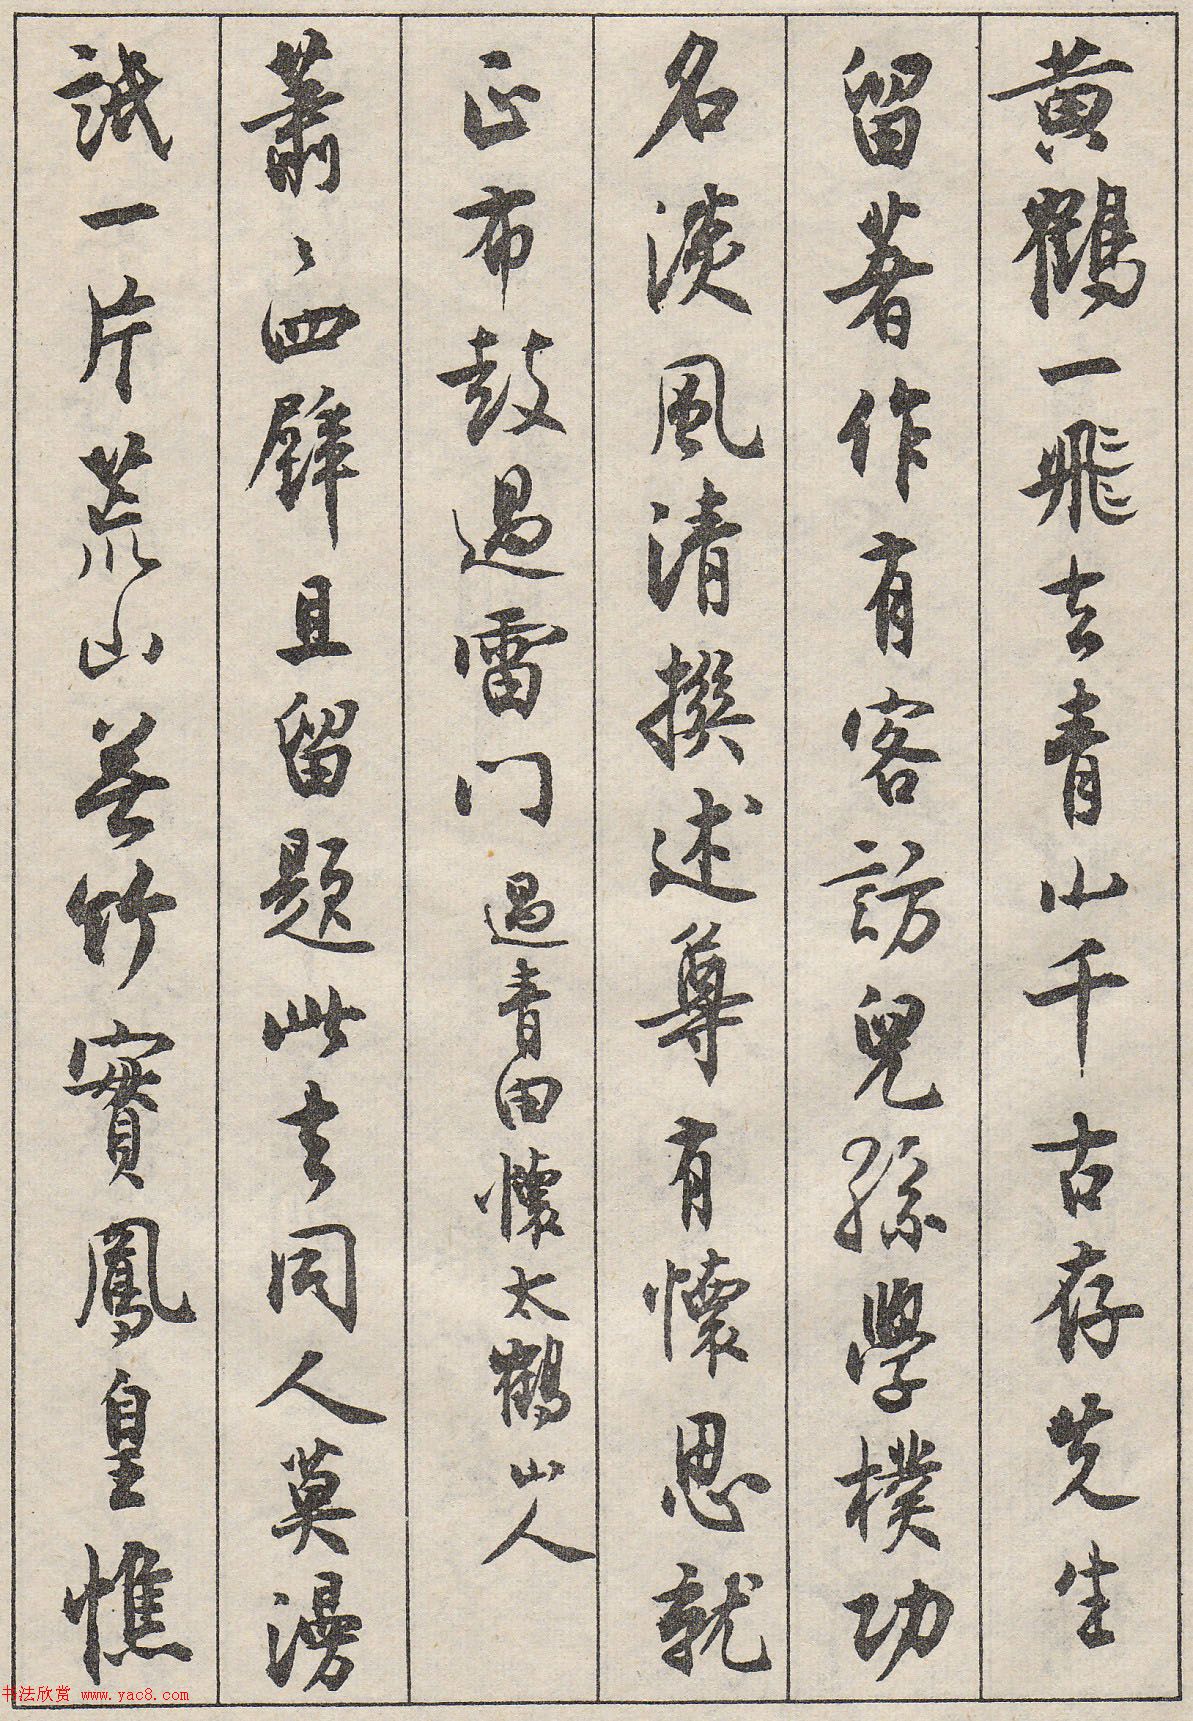 黄鶴一飛去青山千古存先生
留著作有客訪兒孫學樸功
名淡風清撰述尊有懷思就
正布鼓過雷门過青田懷太鶴山人
蕭〻四壁且留題此去同人莫漫
詆一片荒山無竹實鳳皇憔
书法欣赏 www.yac8.com